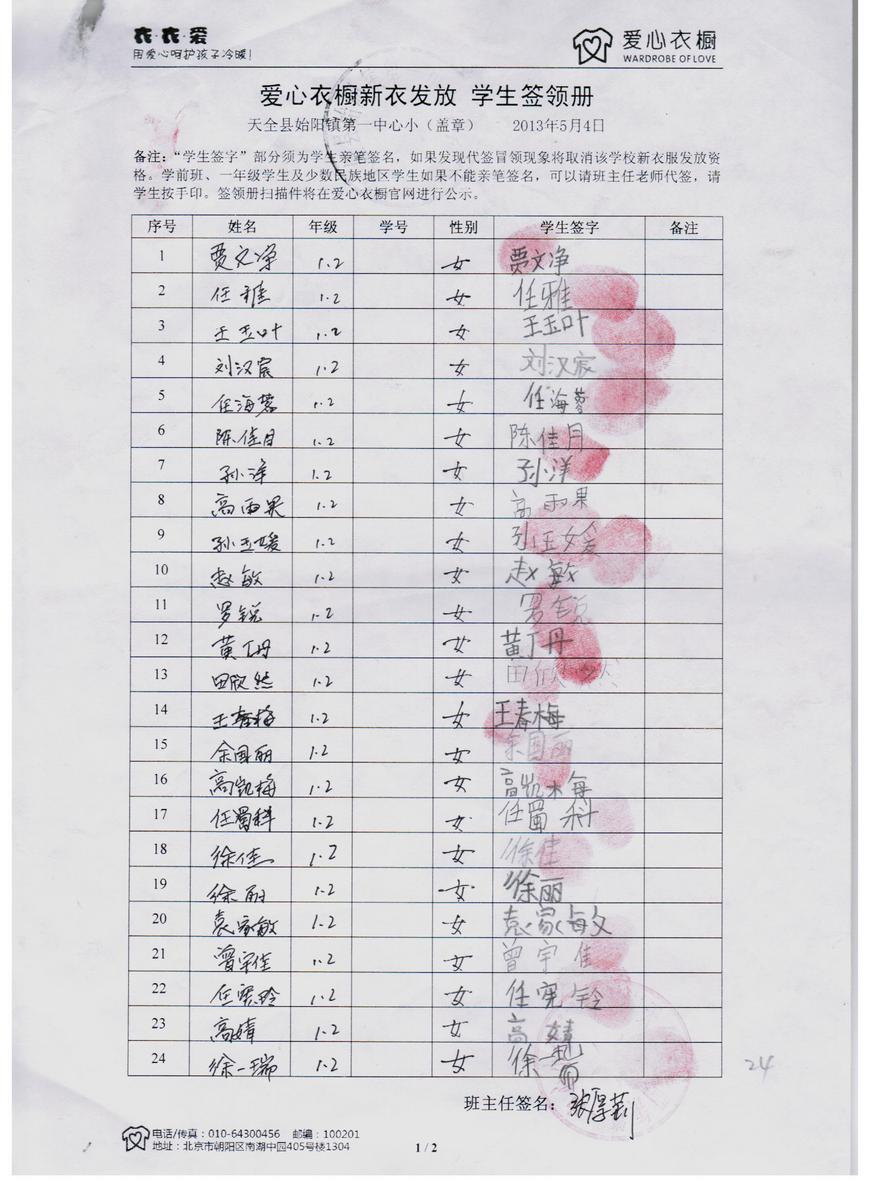 衣·衣·爱
用爱心呵护孩子冷暖!
爱心衣橱
WARDROBE OF LOVE
爱心衣橱新衣发放 学生签领册
天全县始阳镇第一中心小（盖章） 2013年5月4日
备注：“学生签字”部分须为学生亲笔签名，如果发现代签冒领现象将取消该学校新衣服发放资
格。学前班、一年级学生及少数民族地区学生如果不能亲笔签名，可以请班主任老师代签，请
学生按手印。签领册扫描件将在爱心衣橱官网进行公示。
序号 姓名 年级 学号 性别 学生签字 备注
1 贾文净 1.2 女 贾文净
2 任雅 1.2 女 任雅
3 王玉叶 1.2 女 王玉叶
4 刘汉宸 1.2 女 刘汉宸
5 任海蓉 1.2 女 任海蓉
6 陈佳月 1.2 女 陈佳月
7 孙洋 1.2 女 孙洋
8 高雨果 1.2 女 高雨果
9 孙玉媛 1.2 女 孙玉媛
10 赵敏 1.2 女 赵敏
11 罗锐 1.2 女 罗锐
12 黄丁丹 1.2 女 黄丁丹
13 田欣然 1.2 女 田欣然
14 王春梅 1.2 女 王春梅
15 余国丽 1.2 女 余国丽
16 高凯梅 1.2 女 高凯梅
17 任蜀科 1.2 女 任蜀科
18 徐佳 1.2 女 徐佳
19 徐丽 1.2 女 徐丽
20 袁家敏 1.2 女 袁家敏
21 曾宇佳 1.2 女 曾宇佳
22 任宪玲 1.2 女 任宪铃
23 高婧 1.2 女 高婧
24 徐一瑞 1.2 女 徐一瑞
24
班主任签名：张厚莉
电话/传真：010-64300456 邮编：100201
地址：北京市朝阳区南湖中园405号楼1304
1 / 2